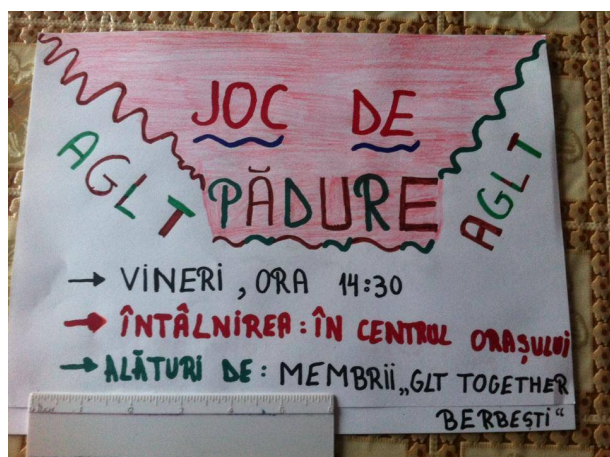 JOC DE
PĂDURE
AGLT
AGLT
→ VINERI, ORA 14:30
→ ÎNTÂLNIREA: ÎN CENTRUL ORAȘULUI
→ ALĂTURI DE: MEMBRII „GLT TOGETHER
BERBEȘTI“